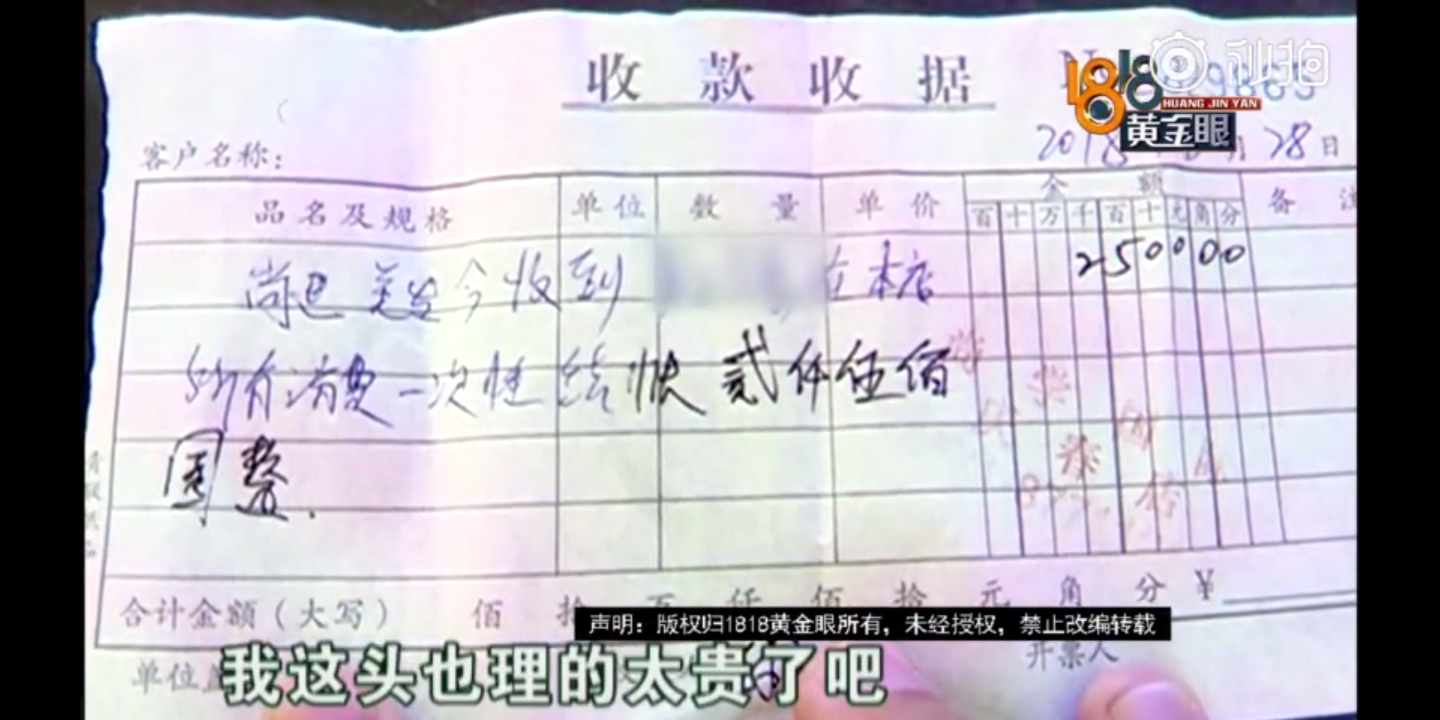 收款收据
1818
HUANG JIN YAN
黄金眼
秒拍
2018 28日
客户名称:
品名及规格 单位 数量 单价 金额 备注
百十万千百十元角分
250000
尚巴美发今收到 在本店
所有消费一次性结 贰仟伍佰
圆整.
合计金额(大写) 佰拾万仟佰拾元角分¥
声明：版权归1818黄金眼所有，未经授权，禁止改编转载
单位盖 开票人
我这头也理的太贵了吧